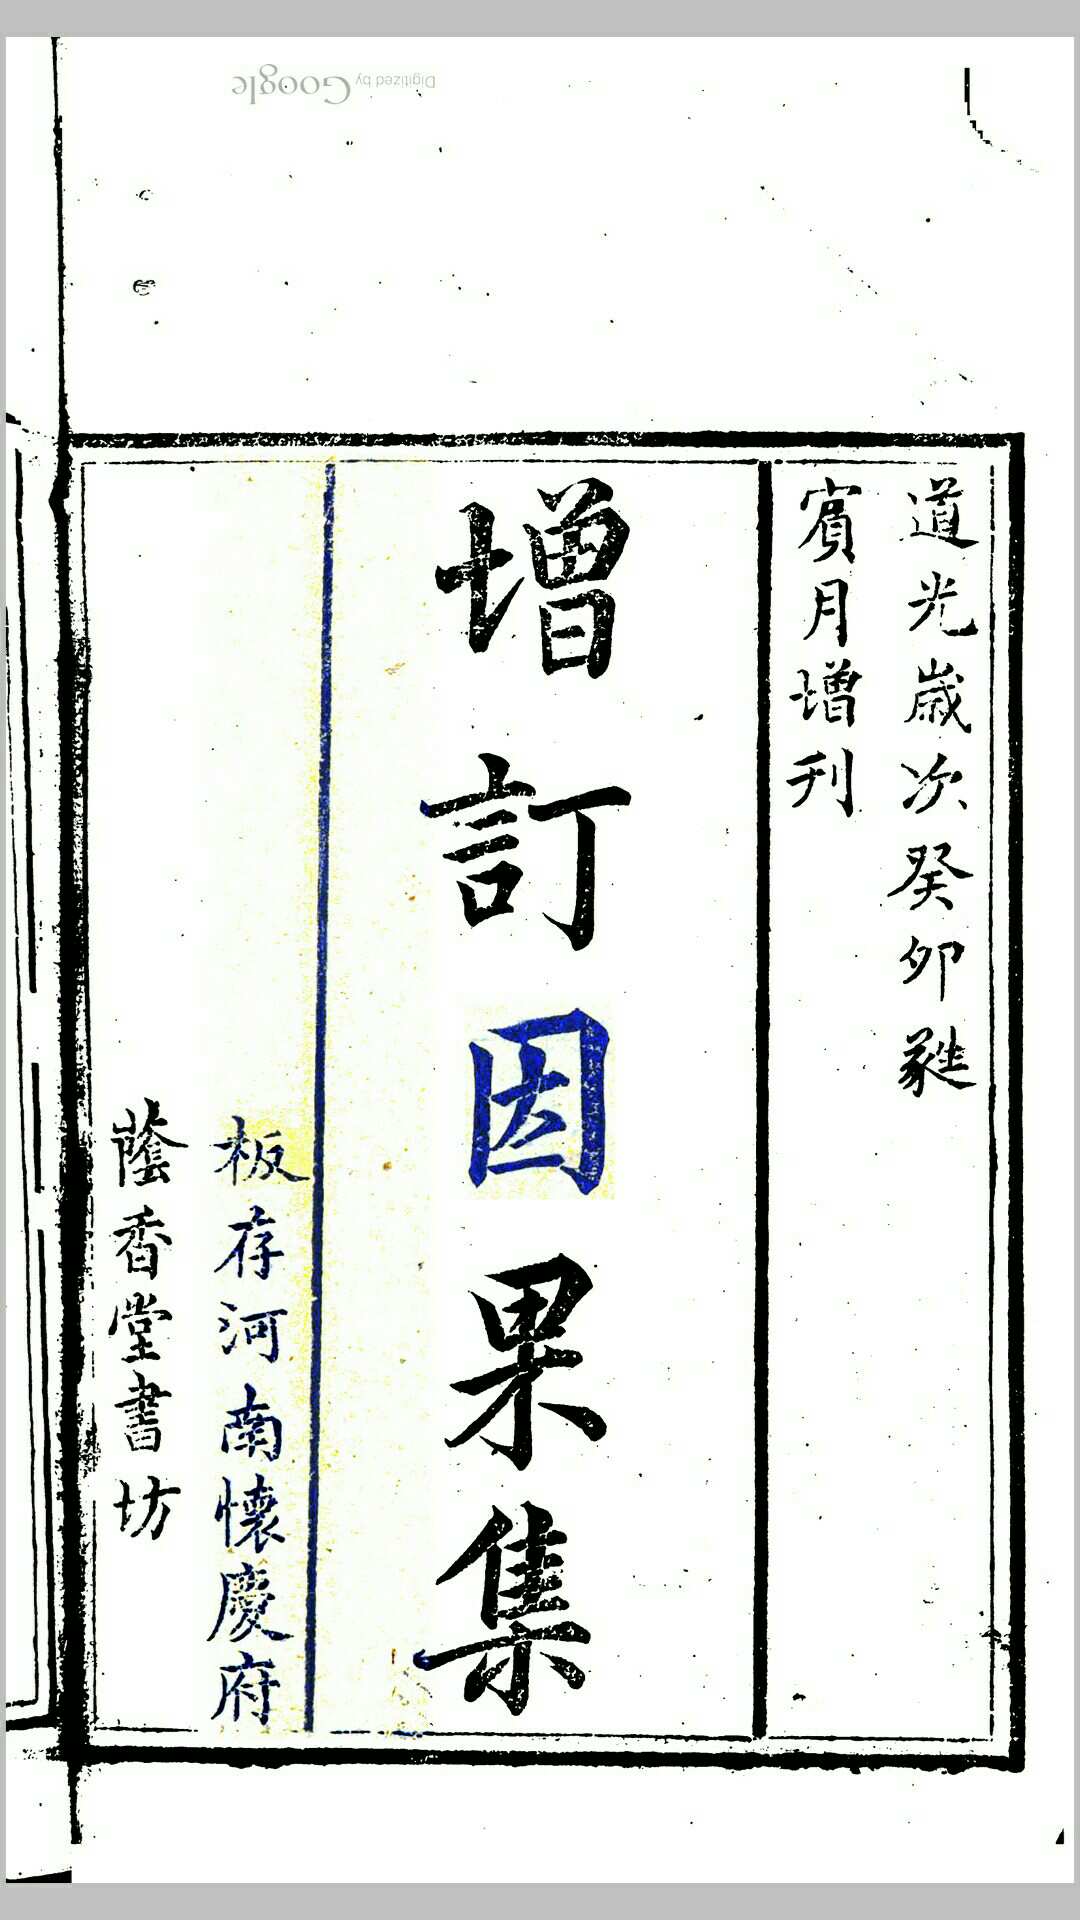 道光歲次癸卯蕤
賓月增刋
增訂因果集
板存河南懷慶府
蔭香堂書坊
Digitized by Google